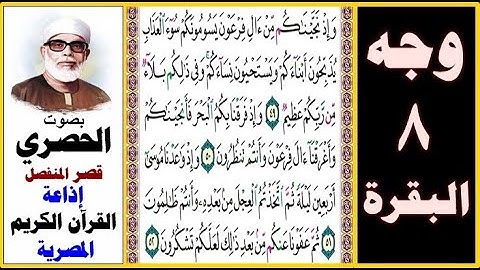 وجه
٨
البقرة
وَإِذْ نَجَّيْنَٰكُم مِّنْ ءَالِ فِرْعَوْنَ يَسُومُونَكُمْ سُوٓءَ ٱلْعَذَابِ
يُذَبِّحُونَ أَبْنَآءَكُمْ وَيَسْتَحْيُونَ نِسَآءَكُمْ وَفِى ذَٰلِكُم بَلَآءٌ
مِّن رَّبِّكُمْ عَظِيمٌ ٤٩ وَإِذْ فَرَقْنَا بِكُمُ ٱلْبَحْرَ فَأَنجَيْنَٰكُمْ
وَأَغْرَقْنَآ ءَالَ فِرْعَوْنَ وَأَنتُمْ تَنظُرُونَ ٥٠ وَإِذْ وَٰعَدْنَا مُوسَىٰٓ
أَرْبَعِينَ لَيْلَةً ثُمَّ ٱتَّخَذْتُمُ ٱلْعِجْلَ مِنۢ بَعْدِهِۦ وَأَنتُمْ ظَٰلِمُونَ
٥١ ثُمَّ عَفَوْنَا عَنكُم مِّنۢ بَعْدِ ذَٰلِكَ لَعَلَّكُمْ تَشْكُرُونَ ٥٢
بصوت
الحصري
قصر المنفصل
إذاعة
القرآن الكريم
المصرية